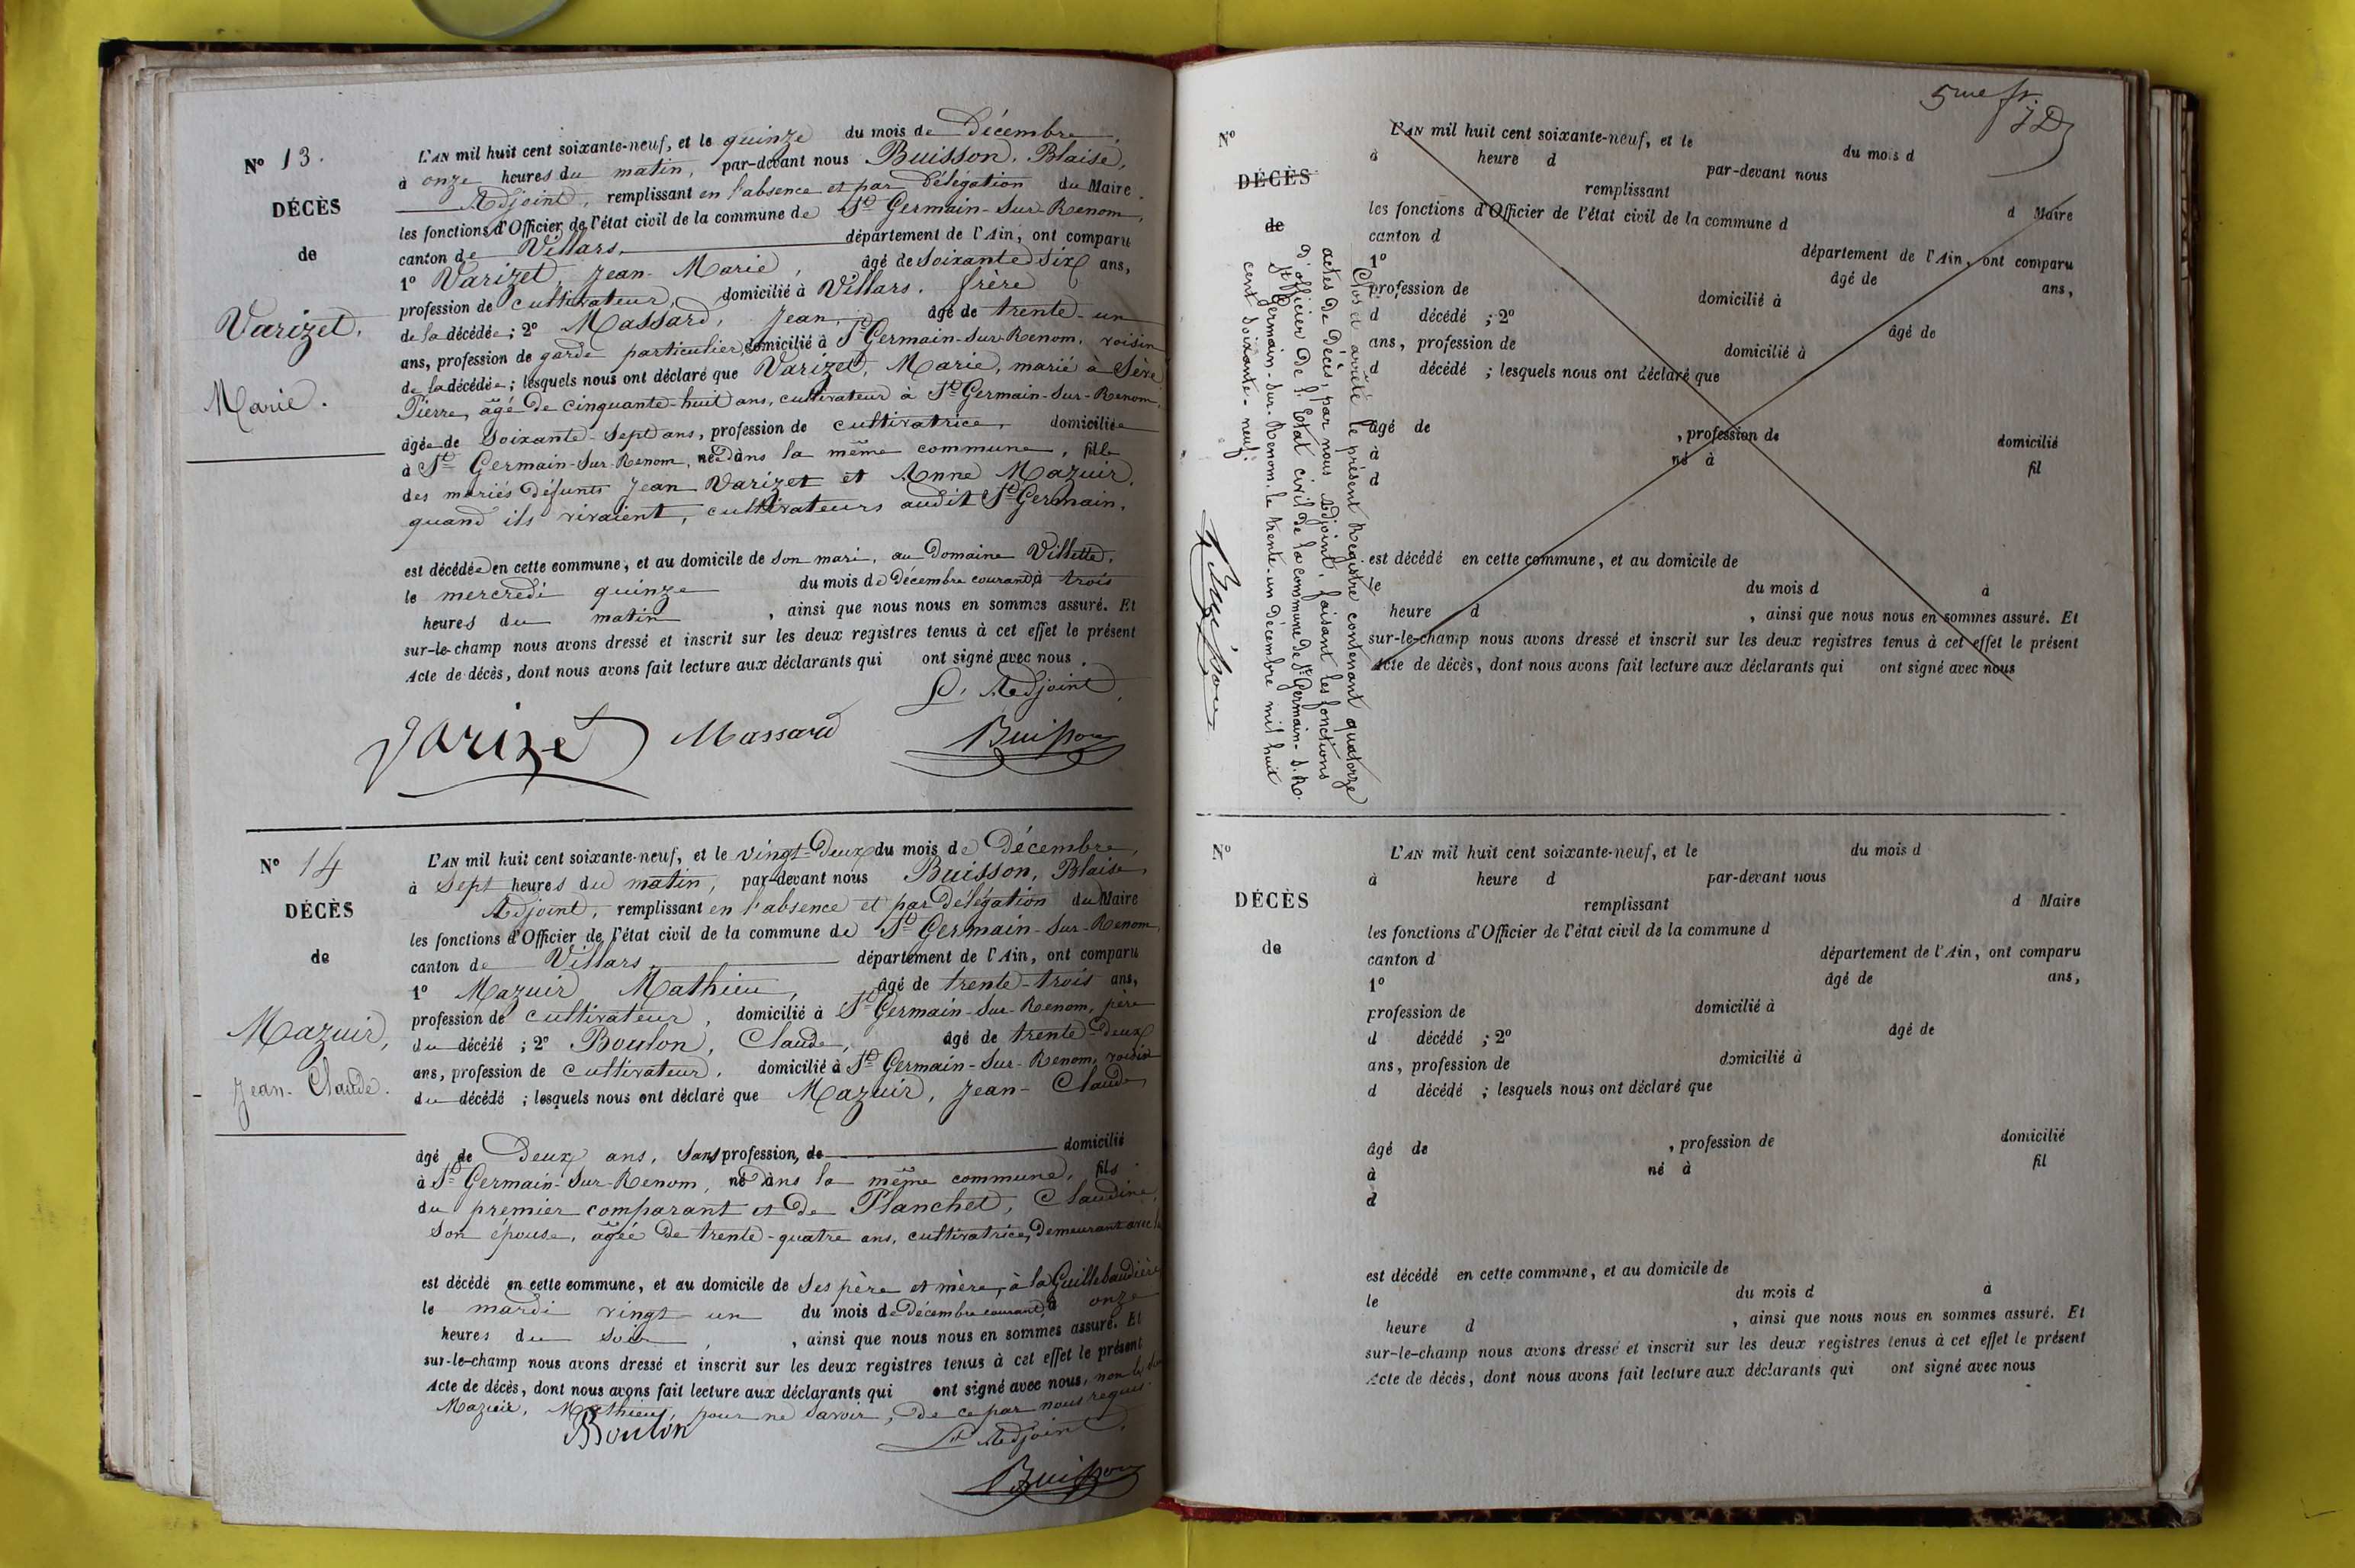 N° 13.
DÉCÈS
de
Varizet,
Marie.
L'AN mil huit cent soixante-neuf, et le quinze du mois de Décembre,
à onze heures du matin, par-devant nous Buisson, Blaise,
Adjoint, remplissant en l'absence et par délégation du Maire
les fonctions d'Officier de l'état civil de la commune de St Germain-Sur-Renom,
canton de Villars, département de l'Ain, ont comparu
1° Varizet, Jean-Marie, âgé de soixante six ans,
profession de cultivateur, domicilié à Villars, frère
de la décédée; 2° Massard, Jean, âgé de trente-un
ans, profession de garde particulier, domicilié à St Germain-Sur-Renom, voisin
de la décédée; lesquels nous ont déclaré que Varizet, Marie, marié à Sève
Pierre, âgé de cinquante-huit ans, cultivateur à St Germain-Sur-Renom,
âgée de Soixante-Sept ans, profession de cultivatrice, domiciliée
à St Germain-Sur-Renom, née dans la même commune, fille
des mariés défunts Jean Varizet et Anne Mazuir,
quand ils vivaient, cultivateurs audit St Germain,
est décédée en cette commune, et au domicile de son mari, au Domaine Villette,
le mercredi quinze du mois de Décembre courant, à trois
heures du matin, ainsi que nous nous en sommes assuré. Et
sur-le-champ nous avons dressé et inscrit sur les deux registres tenus à cet effet le présent
Acte de décès, dont nous avons fait lecture aux déclarants qui ont signé avec nous.
L'Adjoint,
Varizet Massard Buisson
N° 14
DÉCÈS
de
Mazuir,
Jean-Claude.
L'AN mil huit cent soixante-neuf, et le vingt-Deux du mois de Décembre,
à Sept heures du matin, par-devant nous Buisson, Blaise,
Adjoint, remplissant en l'absence et par délégation du Maire
les fonctions d'Officier de l'état civil de la commune de St Germain-Sur-Renom,
canton de Villars, département de l'Ain, ont comparu
1° Mazuir Mathieu, âgé de trente-trois ans,
profession de cultivateur, domicilié à St Germain-Sur-Renom, père
du décédé; 2° Boulon, Claude, âgé de trente-deux
ans, profession de cultivateur, domicilié à St Germain-Sur-Renom, voisin
du décédé; lesquels nous ont déclaré que Mazuir, Jean-Claude
âgé de Deux ans, Sans profession, de domicilié
à St Germain-Sur-Renom, né dans la même commune, fils
du premier comparant et de Planchet, Claudine,
son épouse, âgée de trente-quatre ans, cultivatrice, demeurant avec lui
est décédé en cette commune, et au domicile de Ses père et mère, à la Guillebaudière
le mardi vingt un du mois de Décembre courant, à onze
heures du soir, ainsi que nous nous en sommes assuré. Et
sur-le-champ nous avons dressé et inscrit sur les deux registres tenus à cet effet le présent
Acte de décès, dont nous avons fait lecture aux déclarants qui ont signé avec nous, non
Mazuir, Mathieu, pour ne savoir, de ce par nous requis.
Boulon L'Adjoint,
Buisson
5me
N°
DÉCÈS
de
Clos et arrêté le présent Registre contenant quatorze
actes de Décès, par nous Adjoint, faisant les fonctions
d'officier de l'Etat civil de la commune de St Germain-S.R.
St Germain-Sur-Renom, le trente-un Décembre mil huit
cent soixante-neuf.
Buisson
L'AN mil huit cent soixante-neuf, et le du mois d
à heure d par-devant nous
remplissant d Maire
les fonctions d'Officier de l'état civil de la commune d
canton d département de l'Ain, ont comparu
1° âgé de ans,
profession de domicilié à
d décédé ; 2° âgé de
ans, profession de domicilié à
d décédé ; lesquels nous ont déclaré que
âgé de , profession de domicilié
à né à fil
d
est décédé en cette commune, et au domicile de
le du mois d à
heure d , ainsi que nous nous en sommes assuré. Et
sur-le-champ nous avons dressé et inscrit sur les deux registres tenus à cet effet le présent
Acte de décès, dont nous avons fait lecture aux déclarants qui ont signé avec nous
N°
DÉCÈS
de
L'AN mil huit cent soixante-neuf, et le du mois d
à heure d par-devant nous
remplissant d Maire
les fonctions d'Officier de l'état civil de la commune d
canton d département de l'Ain, ont comparu
1° âgé de ans,
profession de domicilié à
d décédé ; 2° âgé de
ans, profession de domicilié à
d décédé ; lesquels nous ont déclaré que
âgé de , profession de domicilié
à né à fil
d
est décédé en cette commune, et au domicile de
le du mois d à
heure d , ainsi que nous nous en sommes assuré. Et
sur-le-champ nous avons dressé et inscrit sur les deux registres tenus à cet effet le présent
Acte de décès, dont nous avons fait lecture aux déclarants qui ont signé avec nous